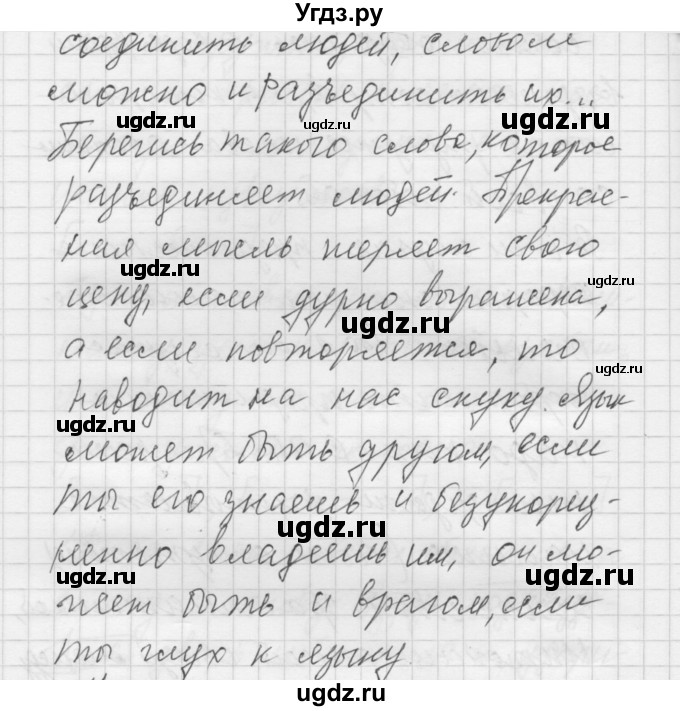 Угдз.ру
соединить людей, словом
можно и разъединить их...
Берегись такого слова, которое
разъединяет людей. Прекрас-
ная мысль теряет свою
цену, если дурно выражена,
а если повторяется, то
наводит на нас скуку. Язык
может быть другом, если
ты его знаешь и безукориз-
ненно владеешь им, он мо-
жет быть и врагом, если
ты глух к языку.
ugdz.ru
ugdz.ru
ugdz.ru
ugdz.ru
ugdz.ru
ugdz.ru
ugdz.ru
ugdz.ru
ugdz.ru
ugdz.ru
ugdz.ru
ugdz.ru
ugdz.ru